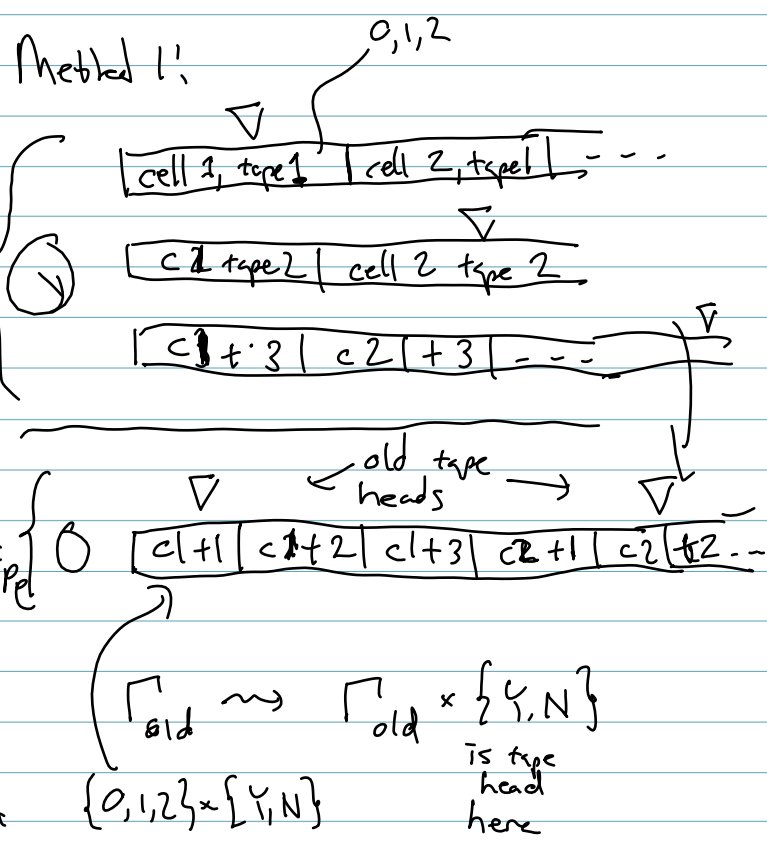 Method 1:
0,1,2
▽
cell 1, tape 1 | cell 2, tape 1 | - - -
▽
c1 tape 2 | cell 2 tape 2
▽
c1 t.3 | c2 | t3 | - - -
old tape
← heads →
▽ ▽
c1 t1 | c1 t2 | c1 t3 | c2 t1 | c2 | t2 - -
Γold ⇝ Γold × {Y,N}
is tape
head
here
{0,1,2}×{Y,N}